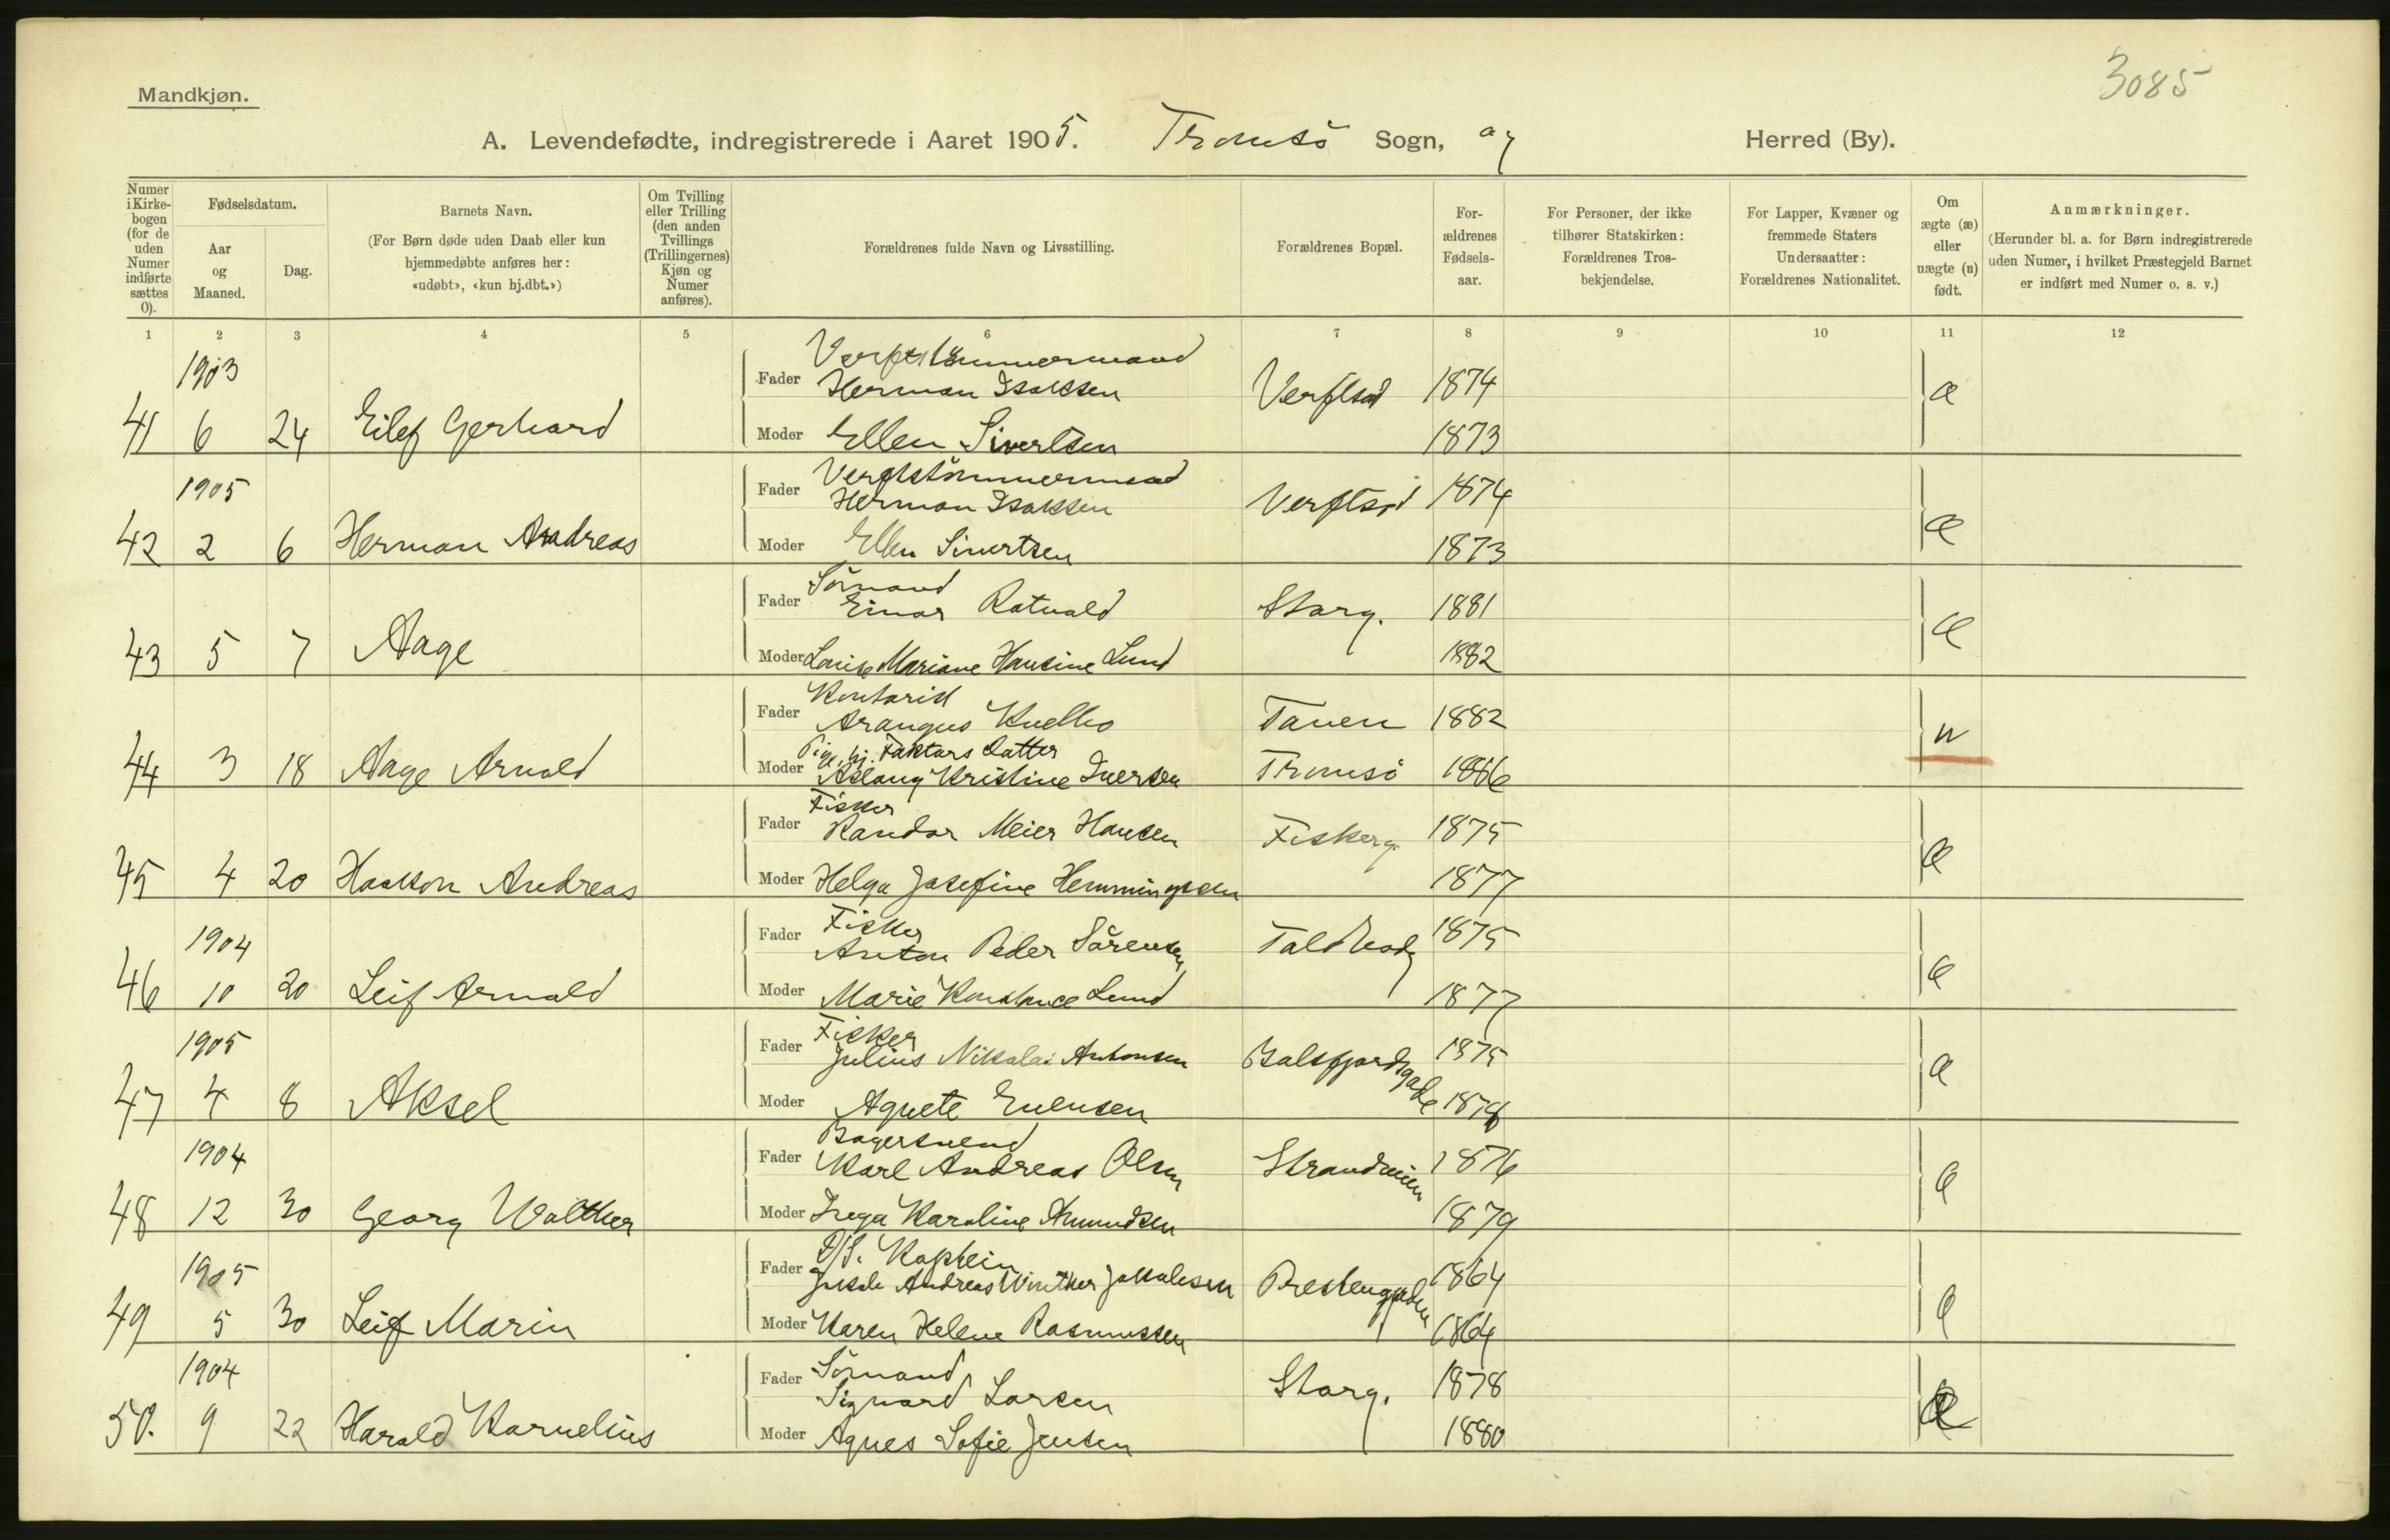 3085
Mandkjøn.
A. Levendefødte, indregistrerede i Aaret 1905. Tromsö Sogn, og Herred (By).
Numer i Kirkebogen (for de uden Numer indførte sættes 0).
Fødselsdatum.
Aar og Maaned.
Dag.
Barnets Navn.
(For Børn døde uden Daab eller kun hjemmedøbte anføres her: «udøbt», «kun hj.dbt.»)
Om Tvilling eller Trilling (den anden Tvillings (Trillingernes) Kjøn og Numer anføres).
Forældrenes fulde Navn og Livsstilling.
Forældrenes Bopæl.
For-ældrenes Fødsels-aar.
For Personer, der ikke tilhører Statskirken: Forældrenes Tros-bekjendelse.
For Lapper, Kvæner og fremmede Staters Undersaatter: Forældrenes Nationalitet.
Om ægte (æ) eller uægte (u) født.
Anmærkninger.
(Herunder bl. a. for Børn indregistrerede uden Numer, i hvilket Præstegjeld Barnet er indført med Numer o. s. v.)
1 2 3 4 5 6 7 8 9 10 11 12
1903
Verftstömmermand
Fader Herman Isaksen 1874 æ
41 6 24 Eilef Gerhard
Moder Ellen Sivertsen 1873
1905
Verftstömmermand
Fader Herman Isaksen 1874 æ
42 2 6 Herman Andreas
Moder Ellen Sivertsen 1873
Sömand
Fader Einar Ratvald Storg. 1881 æ
43 5 7 Aage
Moder Louise Mariane Hansine Lund 1882
Kontorist
Fader Tanen 1882 u
44 3 18 Aage Arnold
Pige, hj. Faktors Datter
Moder Aslaug Kristine Iversen Tromsö 1886
Fisker
Fader Randor Meier Hansen Fiskerg. 1875 æ
45 4 20 Haakon Andreas
Moder Helga Josefine Hemmingsen 1877
1904
Fisker
Fader Anton Peder Sörensen 1875 æ
46 10 20 Leif Arnold
Moder Marie Konstance Lund 1877
1905
Fisker
Fader Julius Nikolai Antonsen Balsfjordsgade 1875 æ
47 4 8 Aksel
Moder Agnete Evensen 1878
1904
Bagersvend
Fader Karl Andreas Olsen Strandveien 1876 æ
48 12 30 Georg Walther
Moder Inga Karoline Amundsen 1879
1905
D/S. Kaptein
Fader Andreas Winther Jakobsen 1864 æ
49 5 30 Leif Marin
Moder Karen Helene Rasmussen 1864
1904
Sömand
Fader Sigvard Larsen Storg. 1878 æ
50. 9 22 Harald Kornelius
Moder Agnes Sofie Jensen 1880